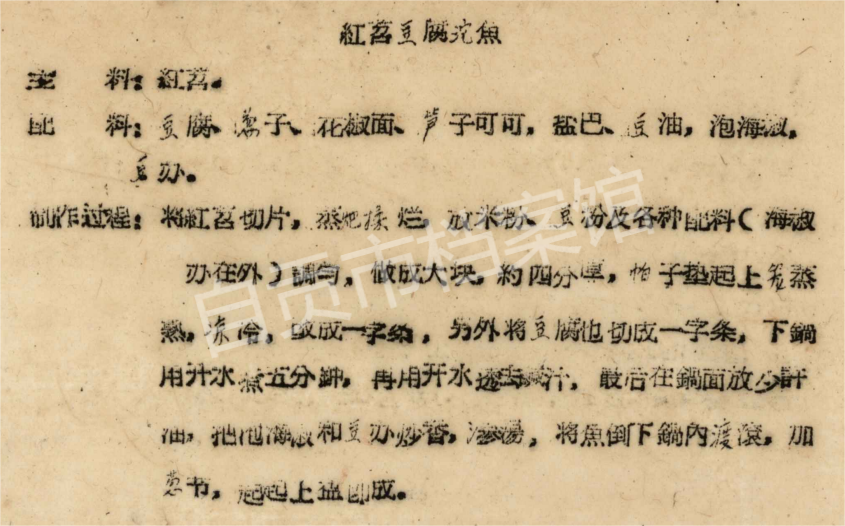 紅苕豆腐沱魚
主 料：紅苕。
配 料：豆腐、葱子、花椒面、芦子可可，盐巴、豆油，泡海椒，
豆办。
制作过程：将紅苕切片，蒸𤆵揉烂，放米粉、豆粉及各种配料（海椒
办在外）調匀，做成大块，約四分厚，帕子垫起上笼蒸
熟，凉冷，改成一字条，另外将豆腐也切成一字条，下鍋
用开水煮五分鈡，再用开水透去 汁，最后在鍋面放少許
油，把泡海椒和豆办炒香，渗湯，将魚倒下鍋內渡滾，加
葱节，起 上盘即成。
自贡市档案馆